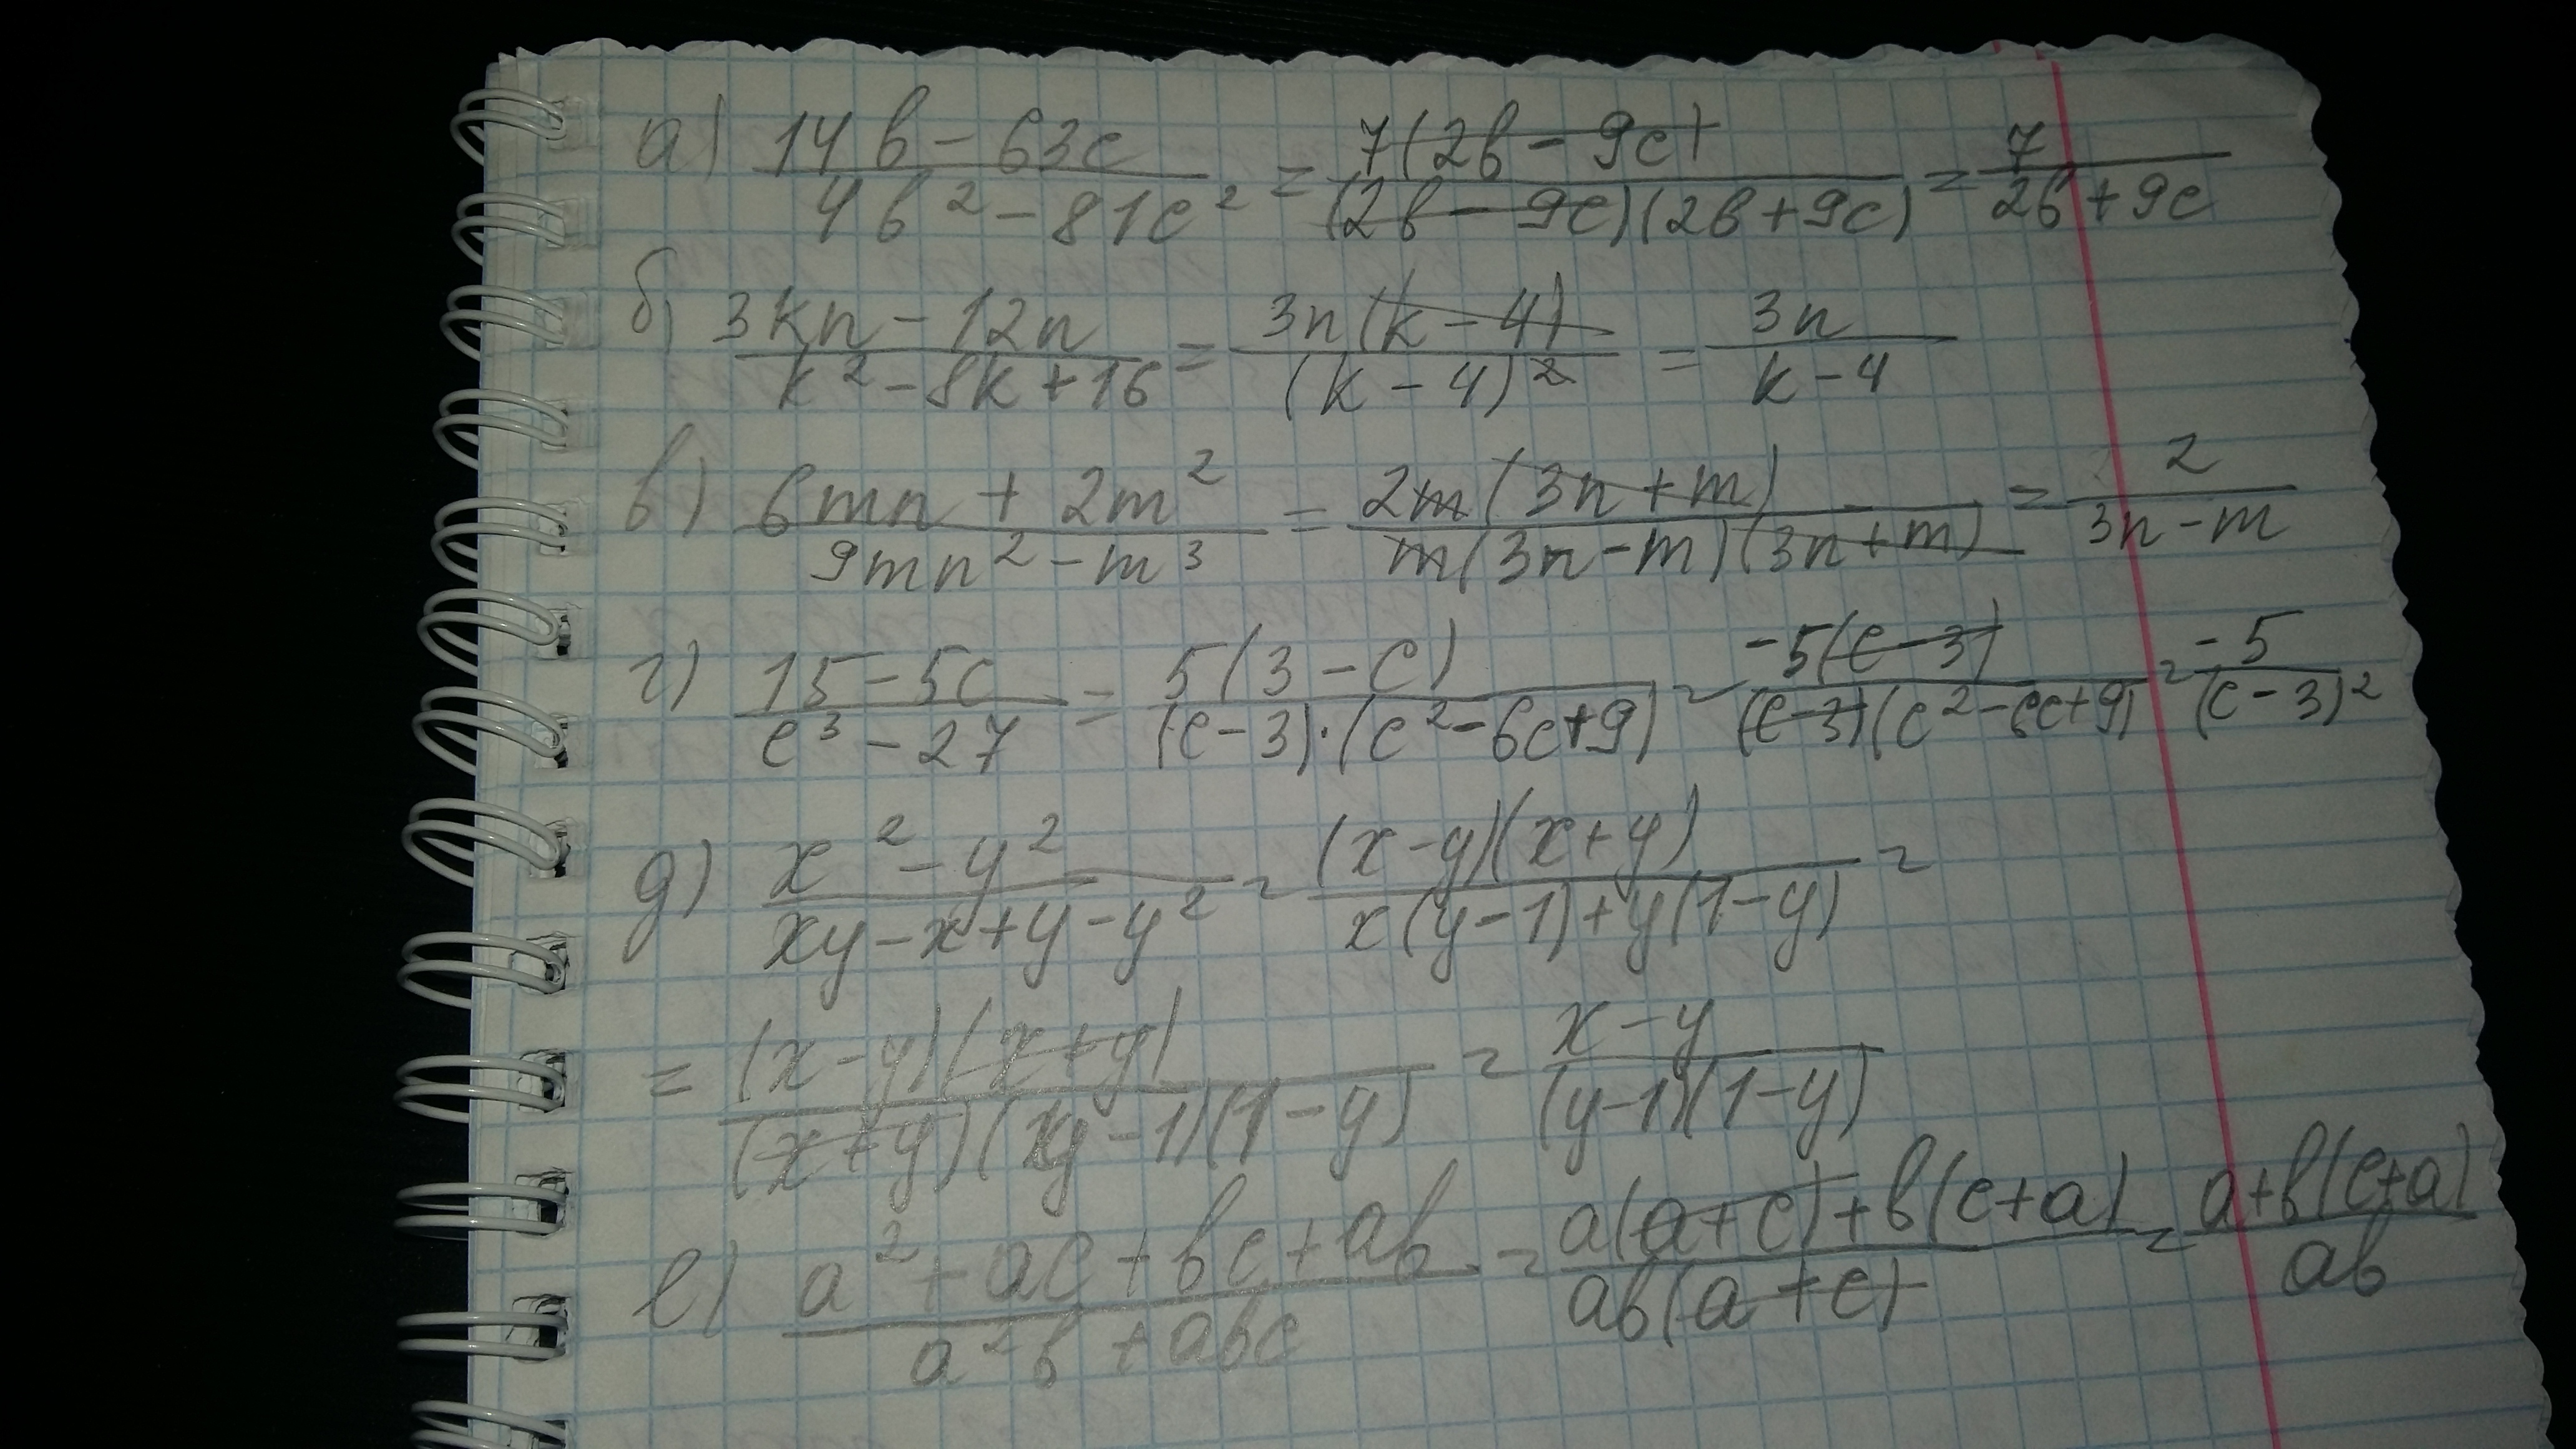 а) (14b - 63c)/(4b² - 81c²) = 7(2b - 9c)/((2b - 9c)(2b + 9c)) = 7/(2b + 9c)
б) (3kn - 12n)/(k² - 8k + 16) = 3n(k - 4)/(k - 4)² = 3n/(k - 4)
в) (6mn + 2m²)/(9mn² - m³) = 2m(3n + m)/(m(3n - m)(3n + m)) = 2/(3n - m)
г) (15 - 5c)/(c³ - 27) = 5(3 - c)/((c - 3)·(c² - 6c + 9)) = -5(c - 3)/((c - 3)(c² - 6c + 9)) = -5/(c - 3)²
д) (x² - y²)/(xy - x + y - y²) = (x - y)(x + y)/(x(y - 1) + y(1 - y)) =
= (x - y)(x + y)/((x + y)(y - 1)(1 - y)) = (x - y)/((y - 1)(1 - y))
е) (a² + ac + bc + ab)/(a²b + abc) = (a(a + c) + b(c + a))/(ab(a + c)) = (a + b(c + a))/(ab)